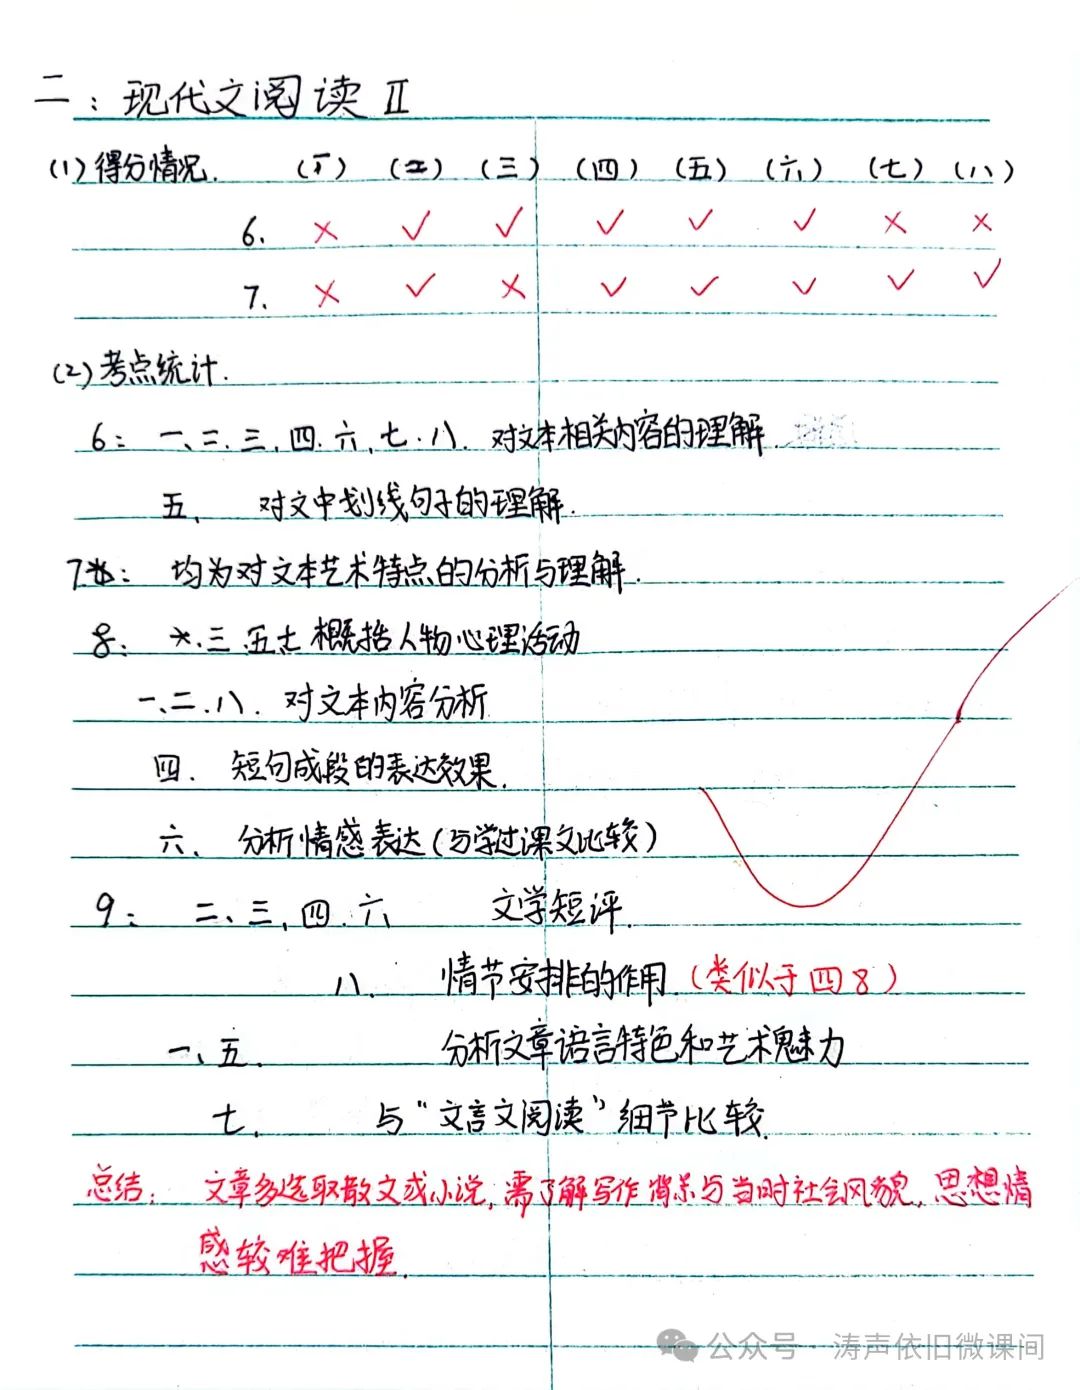 二：现代文阅读 Ⅱ
(1)得分情况. (一) (二) (三) (四) (五) (六) (七) (八)
6. × ✓ ✓ ✓ ✓ ✓ × ×
7. × ✓ × ✓ ✓ ✓ ✓ ✓
(2)考点统计.
6： 一、二.三,四.六,七.八. 对文本相关内容的理解.
五、 对文中划线句子的理解.
7： 均为对文本艺术特点的分析与理解.
8： 三.五七 概括人物心理活动
一、二.八. 对文本内容分析
四. 短句成段的表达效果.
六、 分析情感表达(与学过课文比较)
9： 二、三,四.六 文学短评.
八. 情节安排的作用.(类似于四8)
一、五. 分析文章语言特色和艺术魅力
七. 与“文言文阅读”细节比较.
总结： 文章多选取散文或小说,需了解写作背景与当时社会风貌,思想情
感较难把握.
公众号·涛声依旧微课间